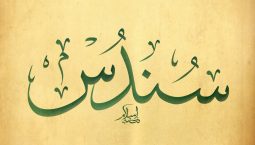 سُنْدُس